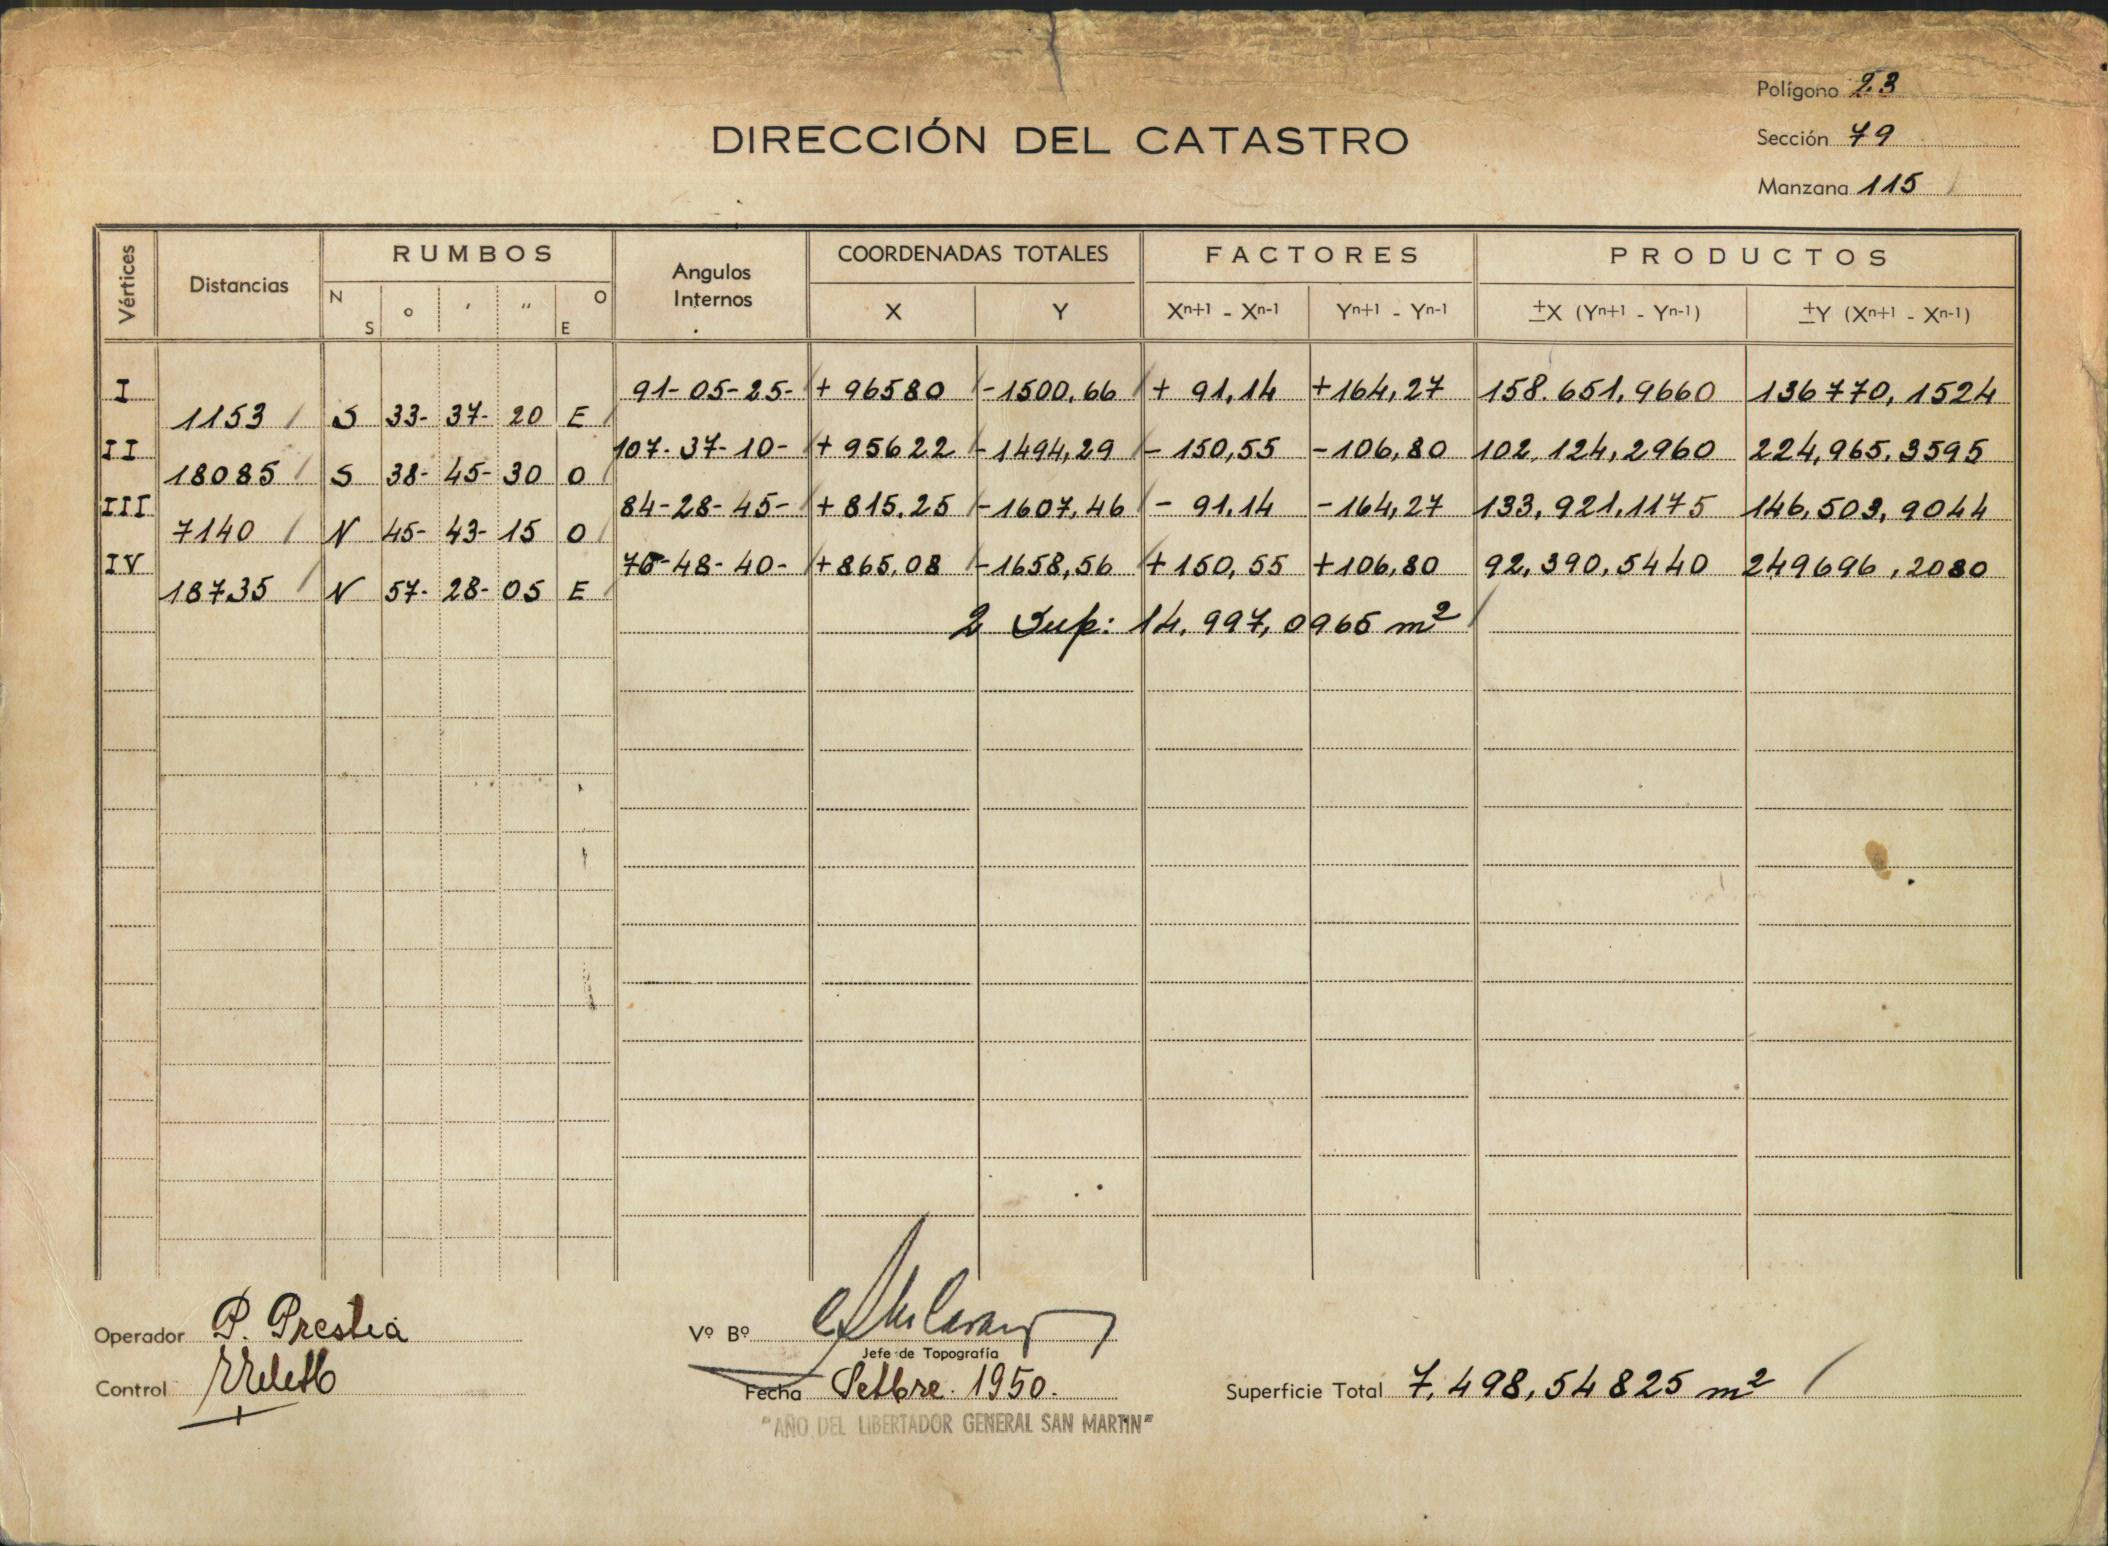 Polígono 23
DIRECCIÓN DEL CATASTRO
Sección 79
Manzana 115
Vértices Distancias RUMBOS Angulos Internos COORDENADAS TOTALES FACTORES PRODUCTOS
N S ° ' " O E X Y Xn+1 - Xn-1 Yn+1 - Yn-1 ±X (Yn+1 - Yn-1) ±Y (Xn+1 - Xn-1)
I 91-05-25- +96580 -1500,66 + 91,14 +164,27 158.651,9660 136770,1524
1153 S 33- 37- 20 E
II 107-37-10- +95622 -1494,29 - 150,55 -106,80 102,124,2960 224,965,3595
18085 S 38- 45- 30 O
III 84-28-45- +815,25 -1607,46 - 91,14 -164,27 133,921,1175 146,503,9044
7140 N 45- 43- 15 O
IV 76-48-40- +865,08 -1658,56 +150,55 +106,80 92,390,5440 249696,2080
187,35 N 57- 28- 05 E
2 Sup: 14,997,0965 m²
Operador P. Prestia
Vº Bº
Jefe de Topografía
Control
Fecha Setbre. 1950.
Superficie Total 7,498,54825 m²
"AÑO DEL LIBERTADOR GENERAL SAN MARTIN"